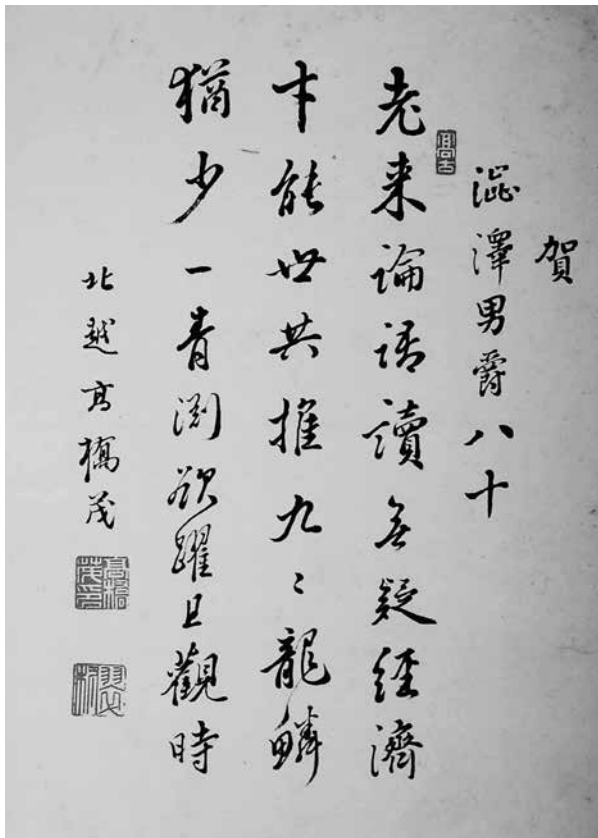 賀
澁澤男爵八十
老来論語讀無疑經濟
才能世共推九〻龍鱗
猶少一青淵欲躍且觀時
北越高橋茂
高橋茂印